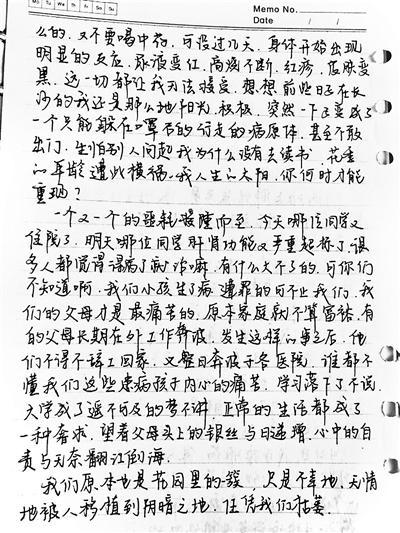 Mo Tu We Th Fr Sa Su
Memo No.
Date / /
么的,又不要喝中药,可没过几天,身体开始出现
明显的反应,尿液变红,高烧不断,红疹,皮肤变
黑,这一切都让我无法接受,想想前些日子在长
沙的我还是那么地阳光,积极,突然一下子变成了
一个只能躲在口罩后的行走的病原体,甚至不敢
出门,生怕别人问起我为什么没有去读书,花季
的年龄遭此横祸,我人生的太阳,你何时才能
重现?
一个又一个的噩耗接踵而至,今天哪位同学又
住院了,明天哪位同学肝肾功能又严重起标了,很
多人都觉得得病了就治嘛,有什么大不了的,可你们
不知道啊,我们小孩生了病遭罪的可不止我们,我
们的父母才是最痛苦的,原本家庭就不算富裕,有
的父母长期在外工作奔波,发生这样的事之后,他
们不得不辞工回家,又整日奔波于各医院,谁都不
懂我们这些患病孩子内心的痛苦,学习落下了不说,
大学成了遥不可及的梦不讲,正常的生活都成了
一种奢求,望着父母头上的银丝与日递增,心中的自
责与无奈翻江倒海.
我们原本也是花园里的
,只是不幸地,无情
地被人移植到阴暗之地,任凭我们枯萎.